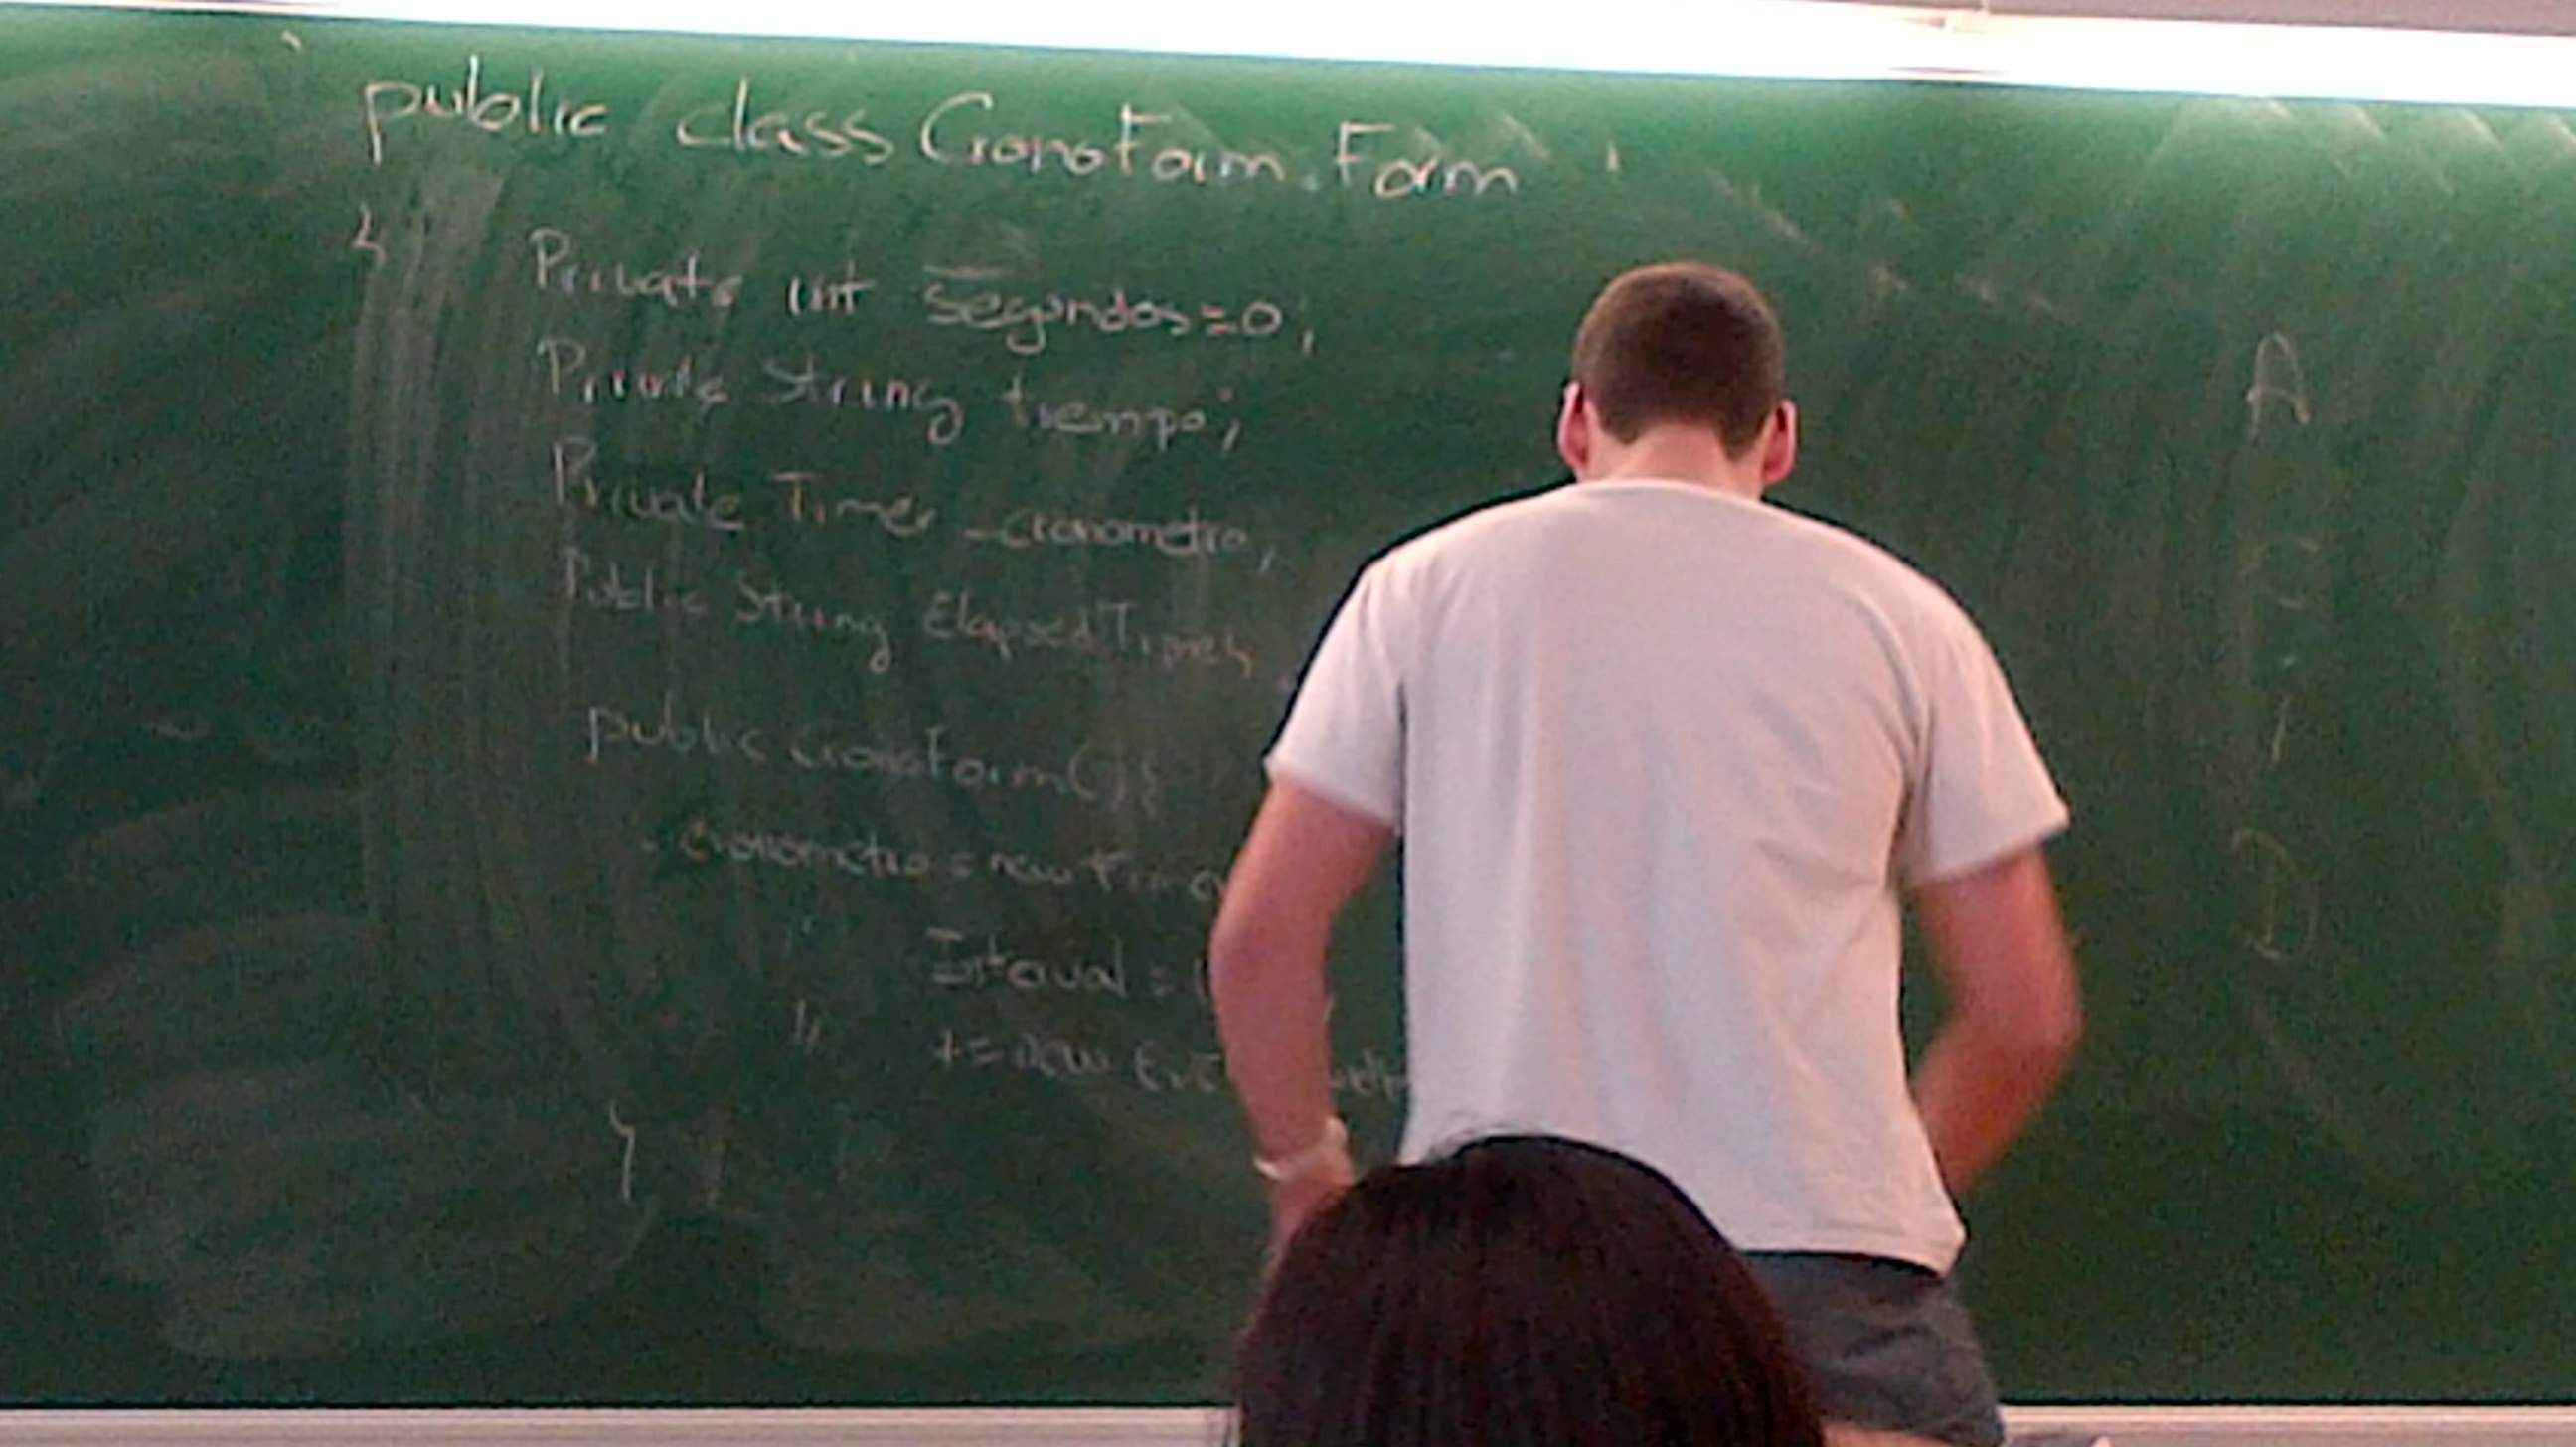 public class CronoForm.Form
{
Private int segundos=0;
Private String tiempo;
Private Timer _cronometro;
Public String ElapsedTime;
public CronoForm(){
_cronometro = new timer
Interval =
" += new
}
A
C
I
D